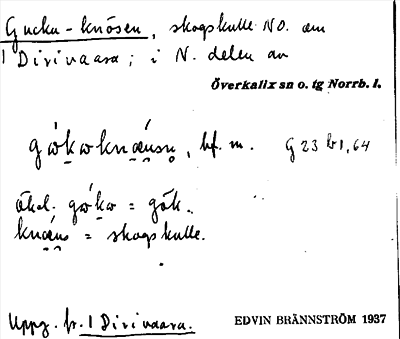 Gucku-knösen, skogskulle NO. om
1 Dirivaara; i N. delen av
Överkalix sn o. tg Norrb. l.
bf. m. G 23 b 1, 64
ökol. = gök.
= skogskulle.
Uppg. fr. 1 Dirivaara.
EDVIN BRÄNNSTRÖM 1937